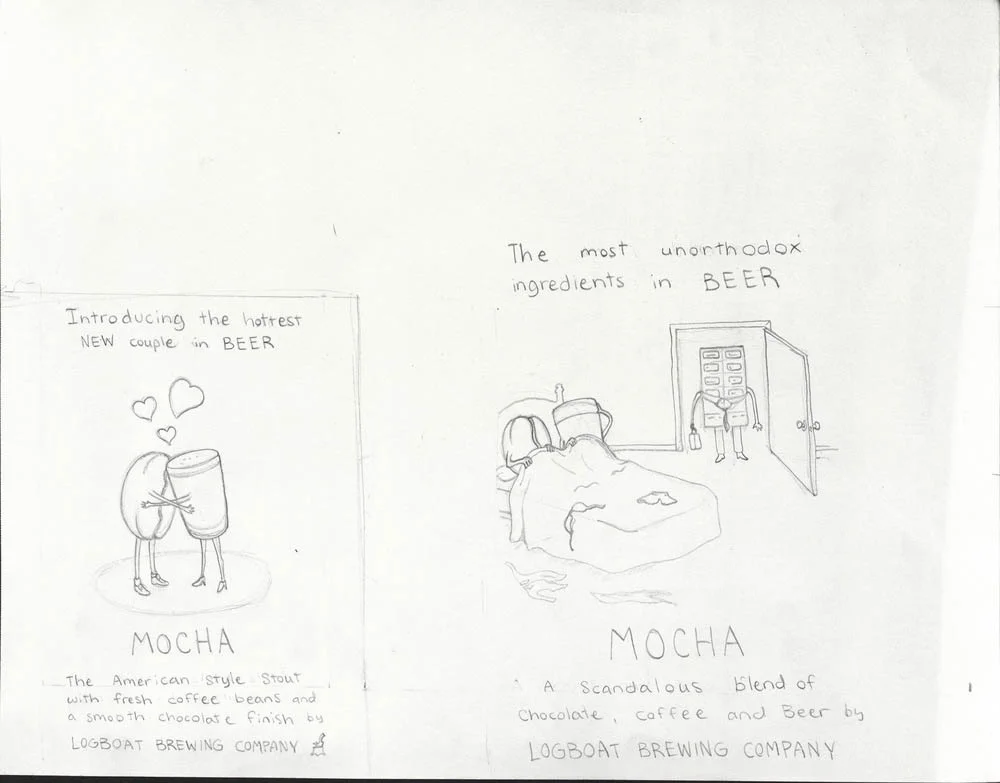 Introducing the hottest
NEW couple in BEER
MOCHA
The American Style Stout
with fresh coffee beans and
a smooth chocolate finish by
LOGBOAT BREWING COMPANY
The most unorthodox
ingredients in BEER
MOCHA
A Scandalous blend of
Chocolate, coffee and Beer by
LOGBOAT BREWING COMPANY